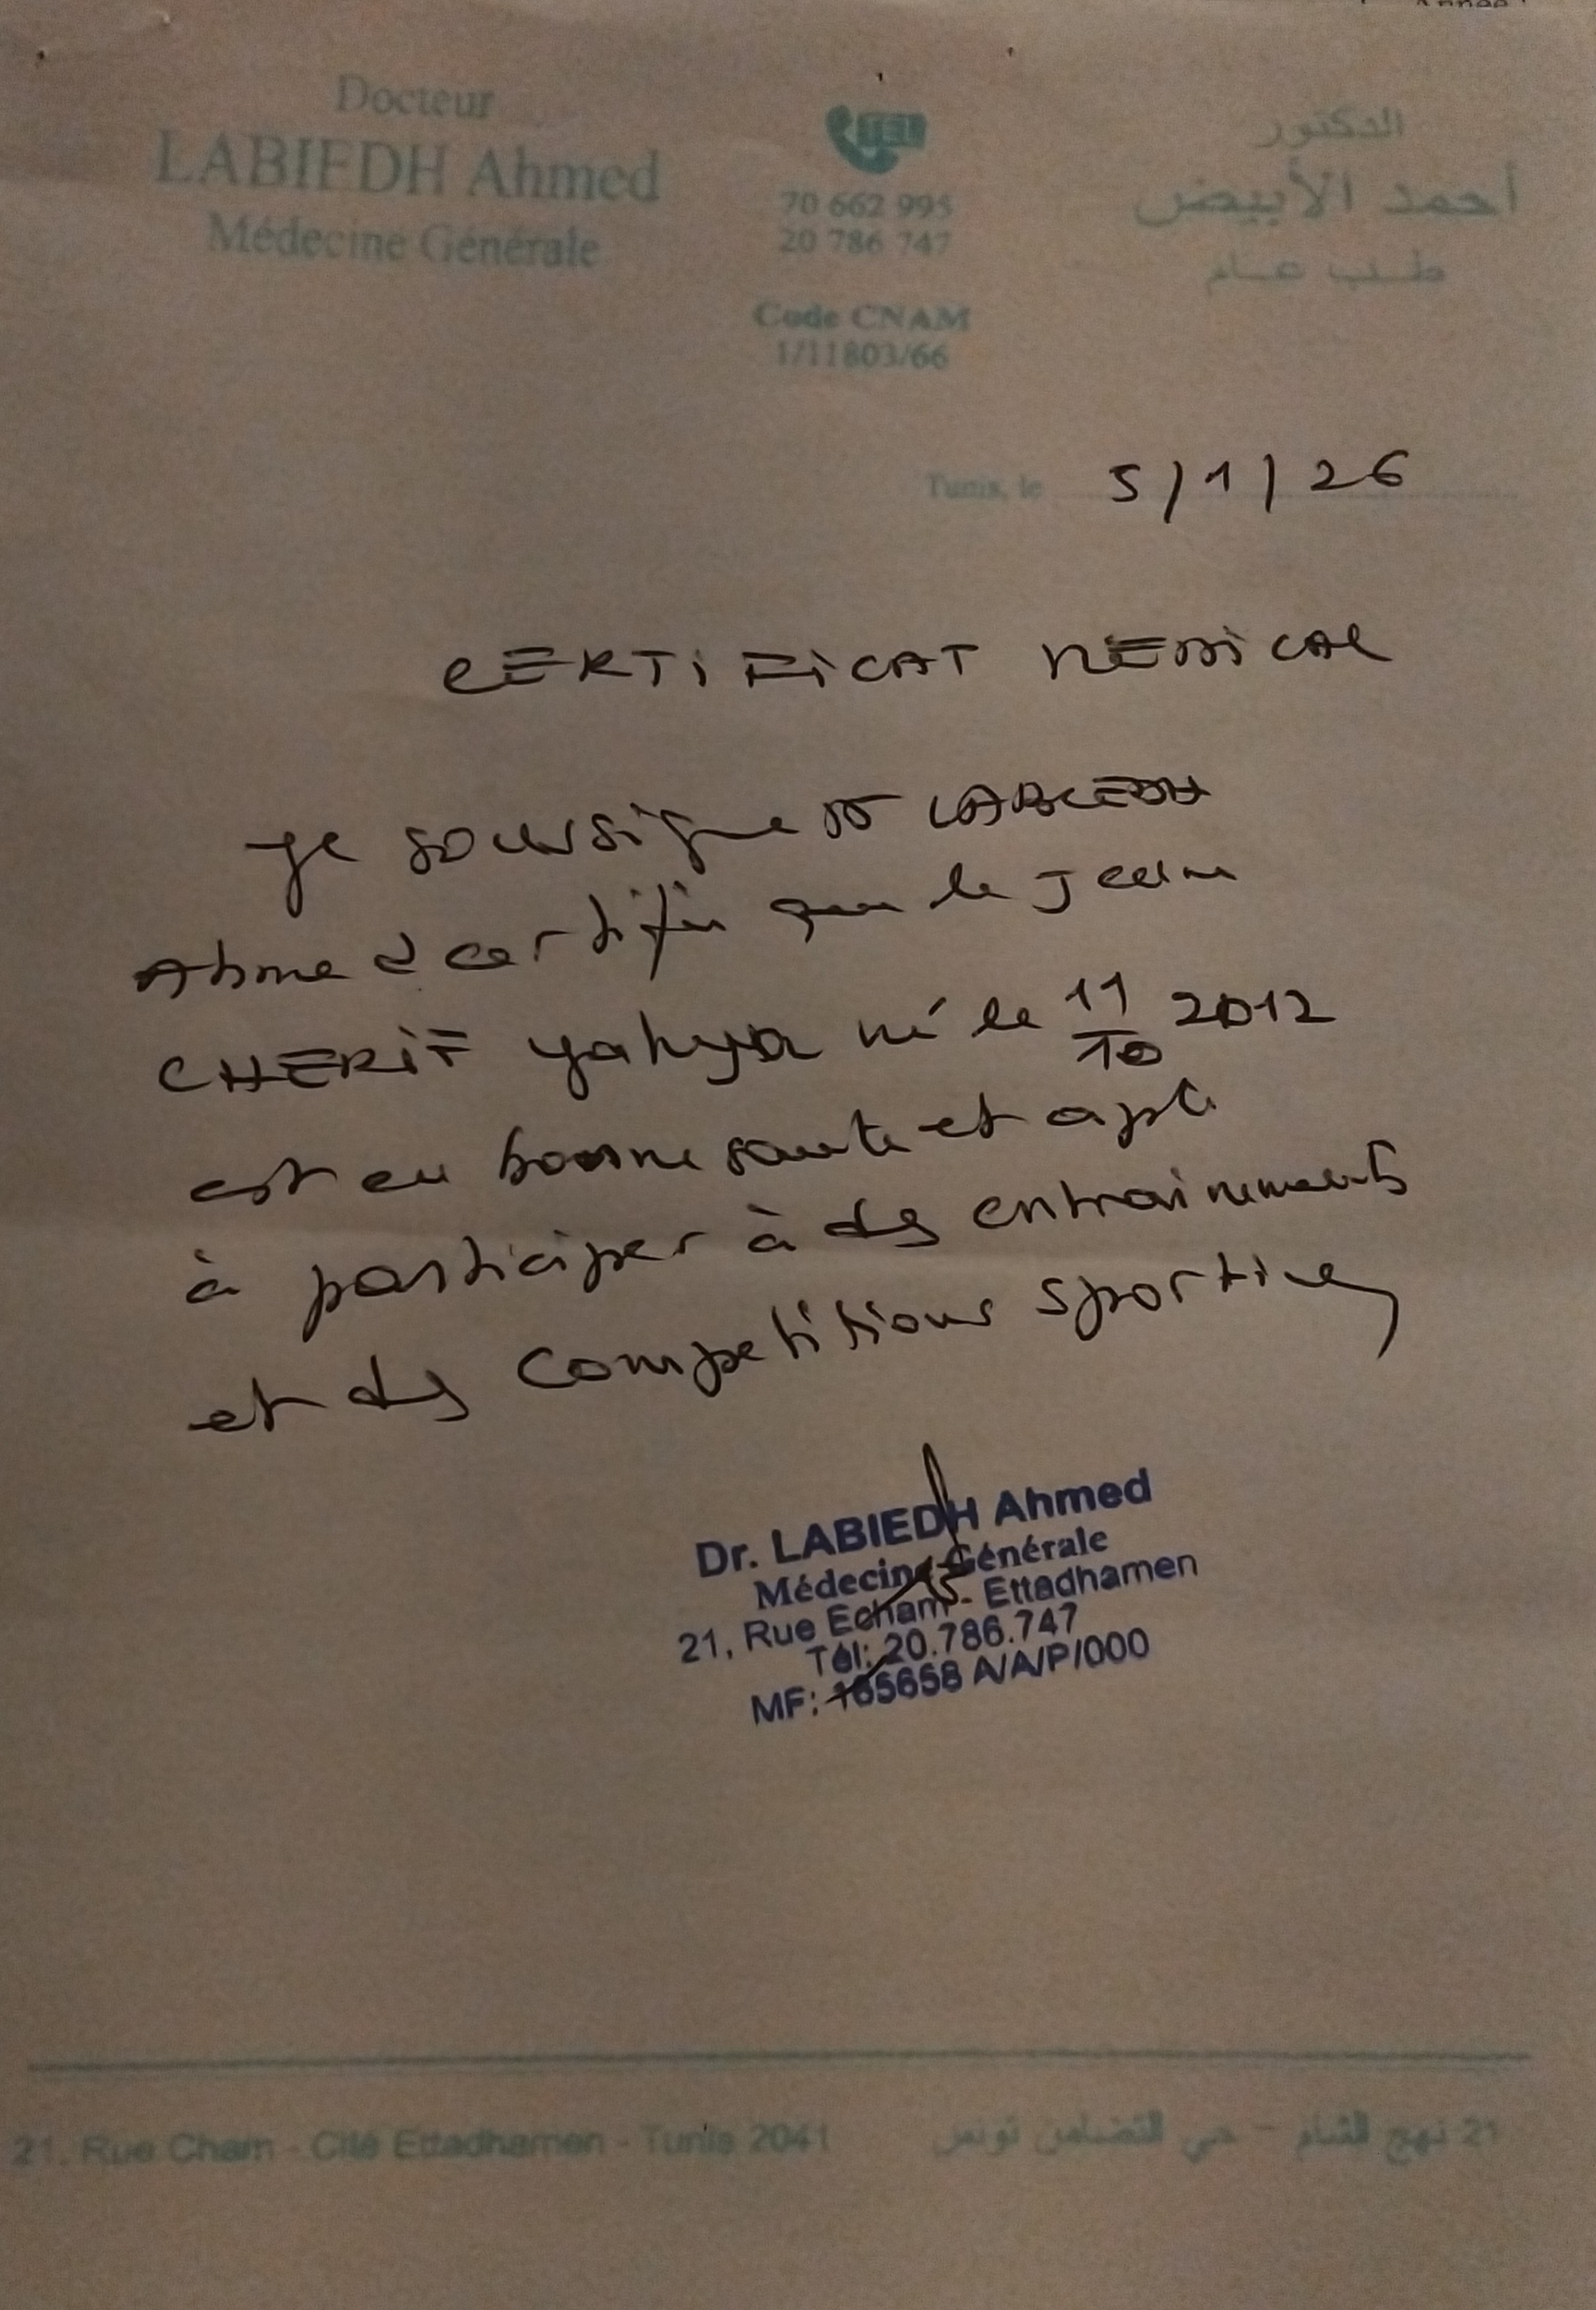 Docteur
LABIEDH Ahmed
Médecine Générale
TEL
70 662 995
20 786 747
Code CNAM
1/11803/66
الدكتور
أحمد الأبيض
طب عام
Tunis, le 5/1/26
CERTIFICAT MEDICAL
Je soussigne Dr LABIEDH
Ahmed certifie que le Jeune
CHERIF Yahya né le 11/10 2012
est en bonne sante et apte
à participer à des entrainements
et des competitions sportives
Dr. LABIEDH Ahmed
Médecine Générale
21, Rue Echam - Ettadhamen
Tél: 20.786.747
MF: 165658 A/A/P/000
21, Rue Cham - Cité Ettadhamen - Tunis 2041
21 نهج الشام - حي التضامن تونس